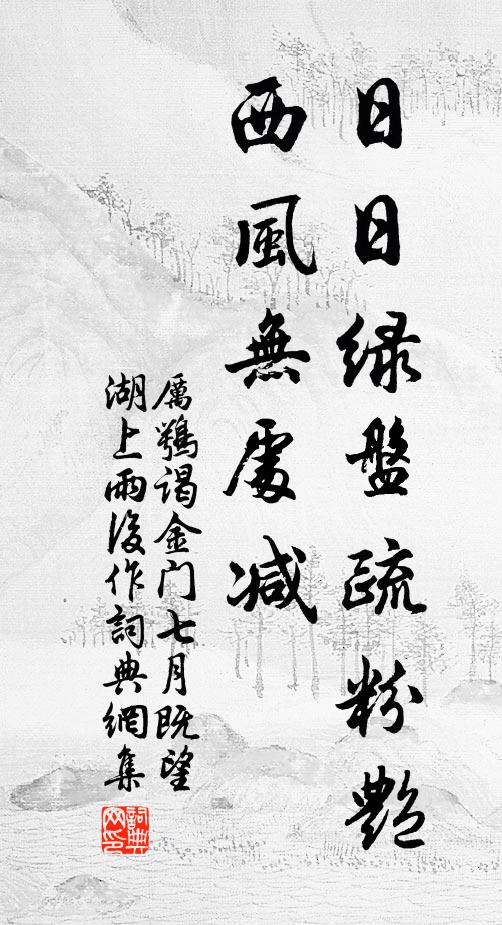 日日緑盤疏粉艷
西風無處減
厲鶚謁金门七月既望
湖上雨後作詞典網集
詞典網印